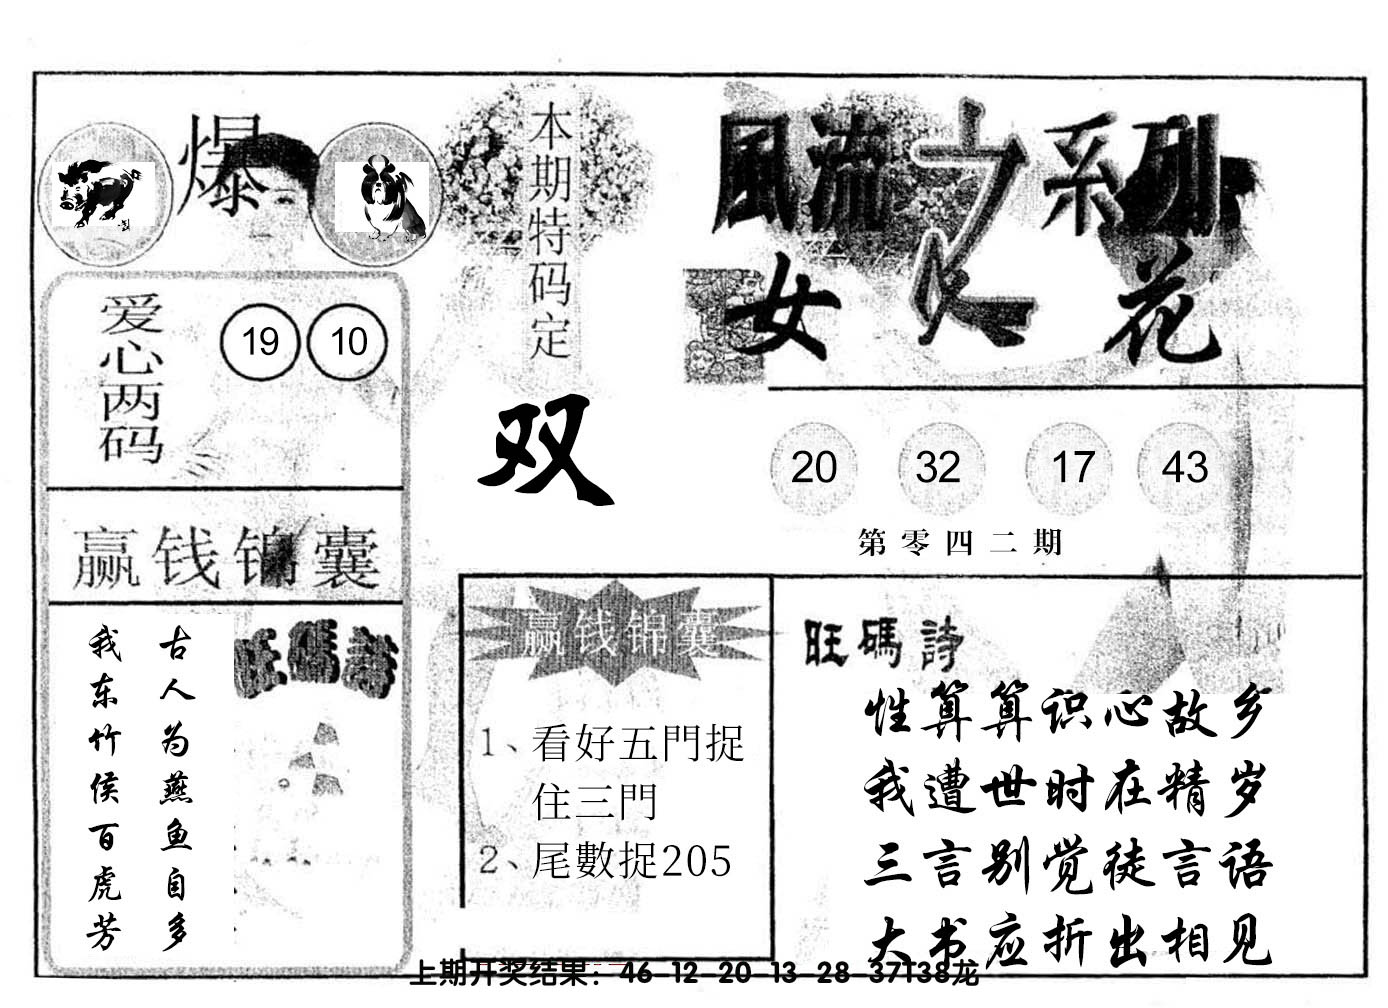 爆
本期特码定
双
風流之系列
女人花
爱心两码
19 10
20 32 17 43
第零四二期
赢钱锦囊
古人为燕鱼自多
我东竹侯百虎芳
旺碼詩
赢钱锦囊
1、看好五門捉
住三門
2、尾數捉205
旺碼詩
性算算识心故乡
我遭世时在精岁
三言别觉徒言语
大书应折出相见
上期开奖结果：46-12-20-13-28-37T38龙